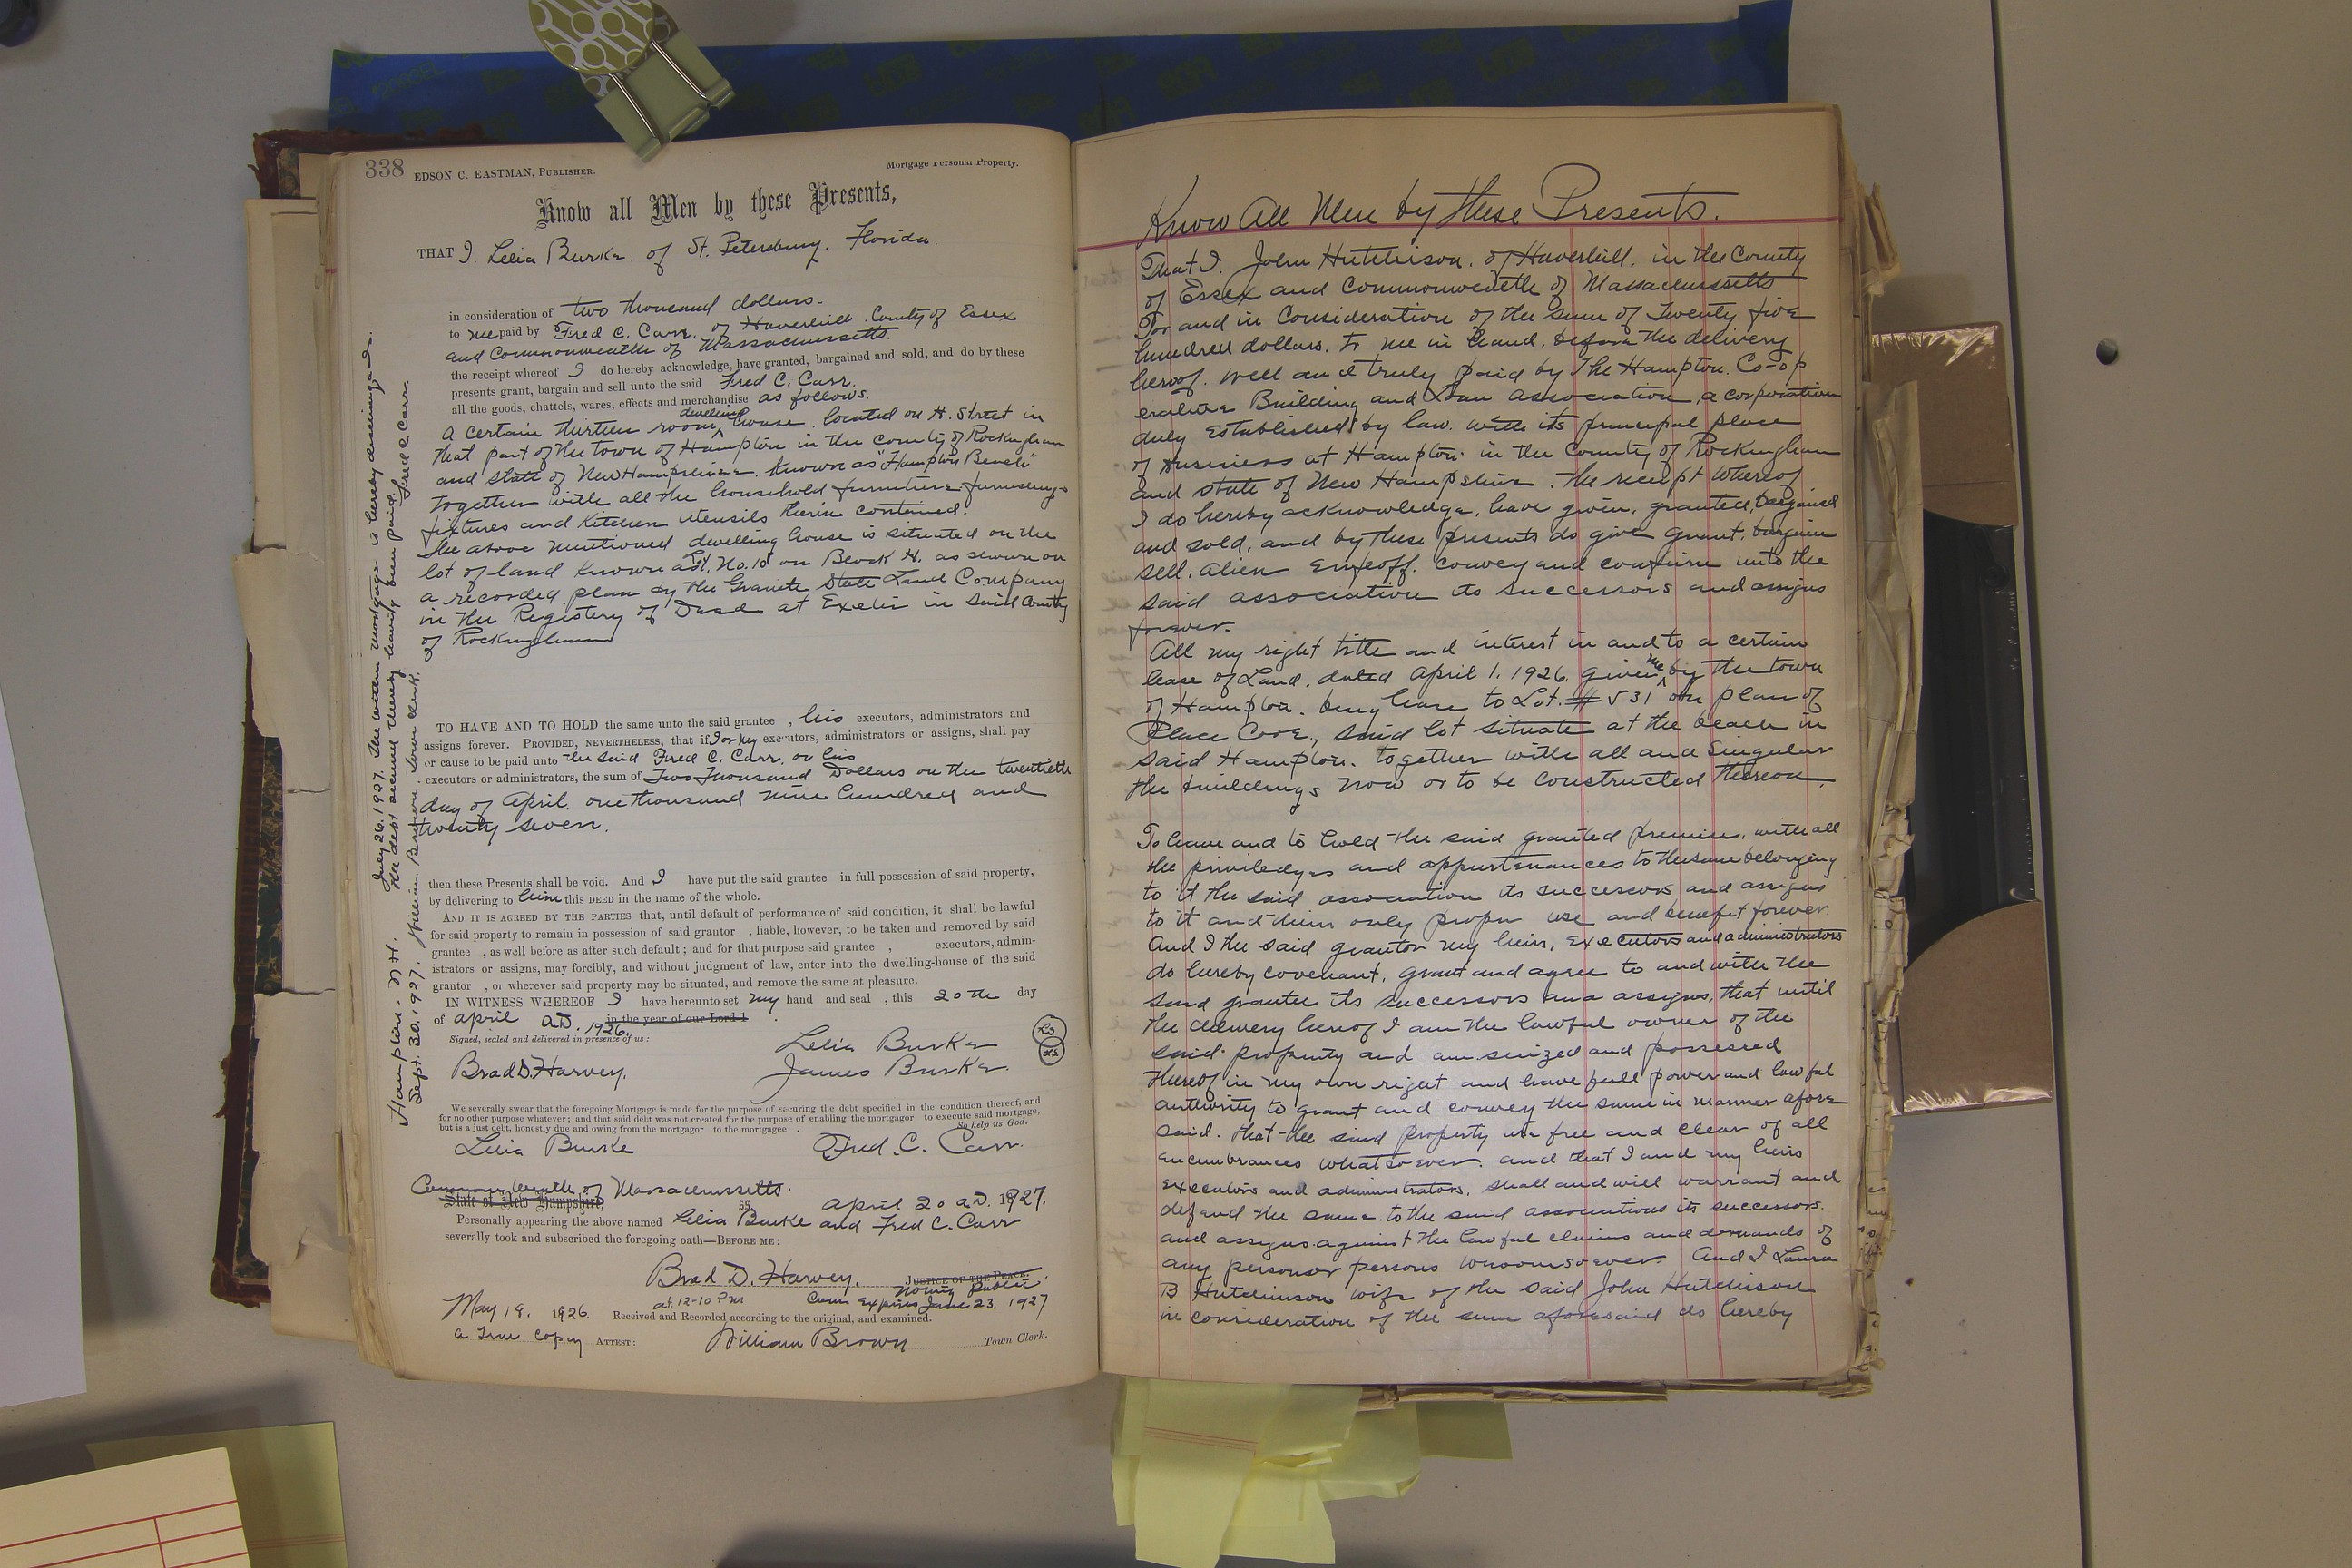 338
EDSON C. EASTMAN, PUBLISHER.
Mortgage Personal Property.
Know all Men by these Presents,
THAT I. Lelia Burke. of St. Petersburg. Florida.
in consideration of two thousand dollars.
to me paid by Fred C. Carr. of Haverhill County of Essex
and Commonwealth of Massachussetts.
the receipt whereof I do hereby acknowledge, have granted, bargained and sold, and do by these
presents grant, bargain and sell unto the said Fred C. Carr.
all the goods, chattels, wares, effects and merchandise as follows.
A certain thirteen room dwelling house. located on H. Street in
that part of the town of Hampton in the county of Rockingham
and state of New Hampshire. Known as "Hampton Beach"
together with all the household furniture furnishings
fixtures and Kitchen utensils therin contained.
The above mentioned dwelling house is situated on the
lot of land known as Lot. No. 18 on Block H. as shown on
a recorded plan by the Granite State Land Company
in the Registery of Deed at Exeter in said County
of Rockingham
TO HAVE AND TO HOLD the same unto the said grantee , his executors, administrators and
assigns forever. PROVIDED, NEVERTHELESS, that if I or my executors, administrators or assigns, shall pay
or cause to be paid unto the said Fred C. Carr. or his
executors or administrators, the sum of Two Thousand Dollars on the twentieth
day of April. one thousand nine hundred and
twenty seven.
then these Presents shall be void. And I have put the said grantee in full possession of said property,
by delivering to him this DEED in the name of the whole.
AND IT IS AGREED BY THE PARTIES that, until default of performance of said condition, it shall be lawful
for said property to remain in possession of said grantor , liable, however, to be taken and removed by said
grantee , as well before as after such default ; and for that purpose said grantee , executors, admin-
istrators or assigns, may forcibly, and without judgment of law, enter into the dwelling-house of the said
grantor , or wherever said property may be situated, and remove the same at pleasure.
IN WITNESS WHEREOF I have hereunto set my hand and seal , this 20th day
of April A.D. 1926. in the year of our Lord 1
Signed, sealed and delivered in presence of us :
Lelia Burke LS
Brad D. Harvey. James Burke. LS
We severally swear that the foregoing Mortgage is made for the purpose of securing the debt specified in the condition thereof, and
for no other purpose whatever ; and that said debt was not created for the purpose of enabling the mortgagor to execute said mortgage,
but is a just debt, honestly due and owing from the mortgagor to the mortgagee . So help us God.
Lelia Burke Fred. C. Carr.
Commonwealth of Massachussetts.
State of New Hampshire, ss. April 20 A.D. 1927.
Personally appearing the above named Lelia Burke and Fred C. Carr
severally took and subscribed the foregoing oath—BEFORE ME :
Brad D. Harvey. JUSTICE OF THE PEACE.
Notary Public
Com Expires June 23, 1927
May 18. 1926. at 12-10 PM Received and Recorded according to the original, and examined.
a True copy ATTEST : William Brown Town Clerk.
July 26. 1927. The within mortgage is hereby discharged.
the debt secured thereby having been paid. Fred C Carr.
Hampton. N.H.
Sept. 30. 1927. William Brown Town Clerk.
Know All Men by these Presents.
That I. John Hutchison. of Haverhill. in the County
of Essex and Commonwealth of Massachussetts
For and in Consideration of the sum of Twenty five
hundred dollars. to me in hand. before the delivery
hereof. well and truly paid by The Hampton. Co-op
erative Building and Loan Association, a corporation
duly established by law. with its principal place
of Business at Hampton. in the County of Rockingham
and state of New Hampshire. The receipt whereof
I do hereby acknowledge, have given, granted, bargained
and sold, and by these presents do give grant, bargain
sell. alien enfeoff. convey and confirm unto the
said association its successors and assigns
forever.
All my right title and interest in and to a certain
lease of Land. dated April 1. 1926. given me by the town
of Hampton. being lease to Lot. # 531 on plan of
Place Cove., said lot situate at the beach in
said Hampton. together with all and singular
the buildings now or to be constructed thereon.
To have and to hold the said granted premises, with all
the priviledges and appurtenances to the same belonging
to it the said association its successors and assigns
to it and their only proper use and benefit forever.
And I the said grantor my heirs, executors and administrators
do hereby covenant, grant and agree to and with the
said grantee its successors and assigns, that until
the delivery hereof I am the lawful owner of the
said property and am seized and possessed
thereof in my own right and have full power and lawful
authority to grant and convey the same in manner afore
said. that the said property is free and clear of all
encumbrances whatsoever. and that I and my heirs
executors and administrators, shall and will warrant and
defend the same. to the said associations its successors.
and assigns. against the lawful claims and demands of
any person or persons whomsoever. And I Laura
B Hutchinson wife of the said John Hutchison
in consideration of the sum aforesaid do hereby